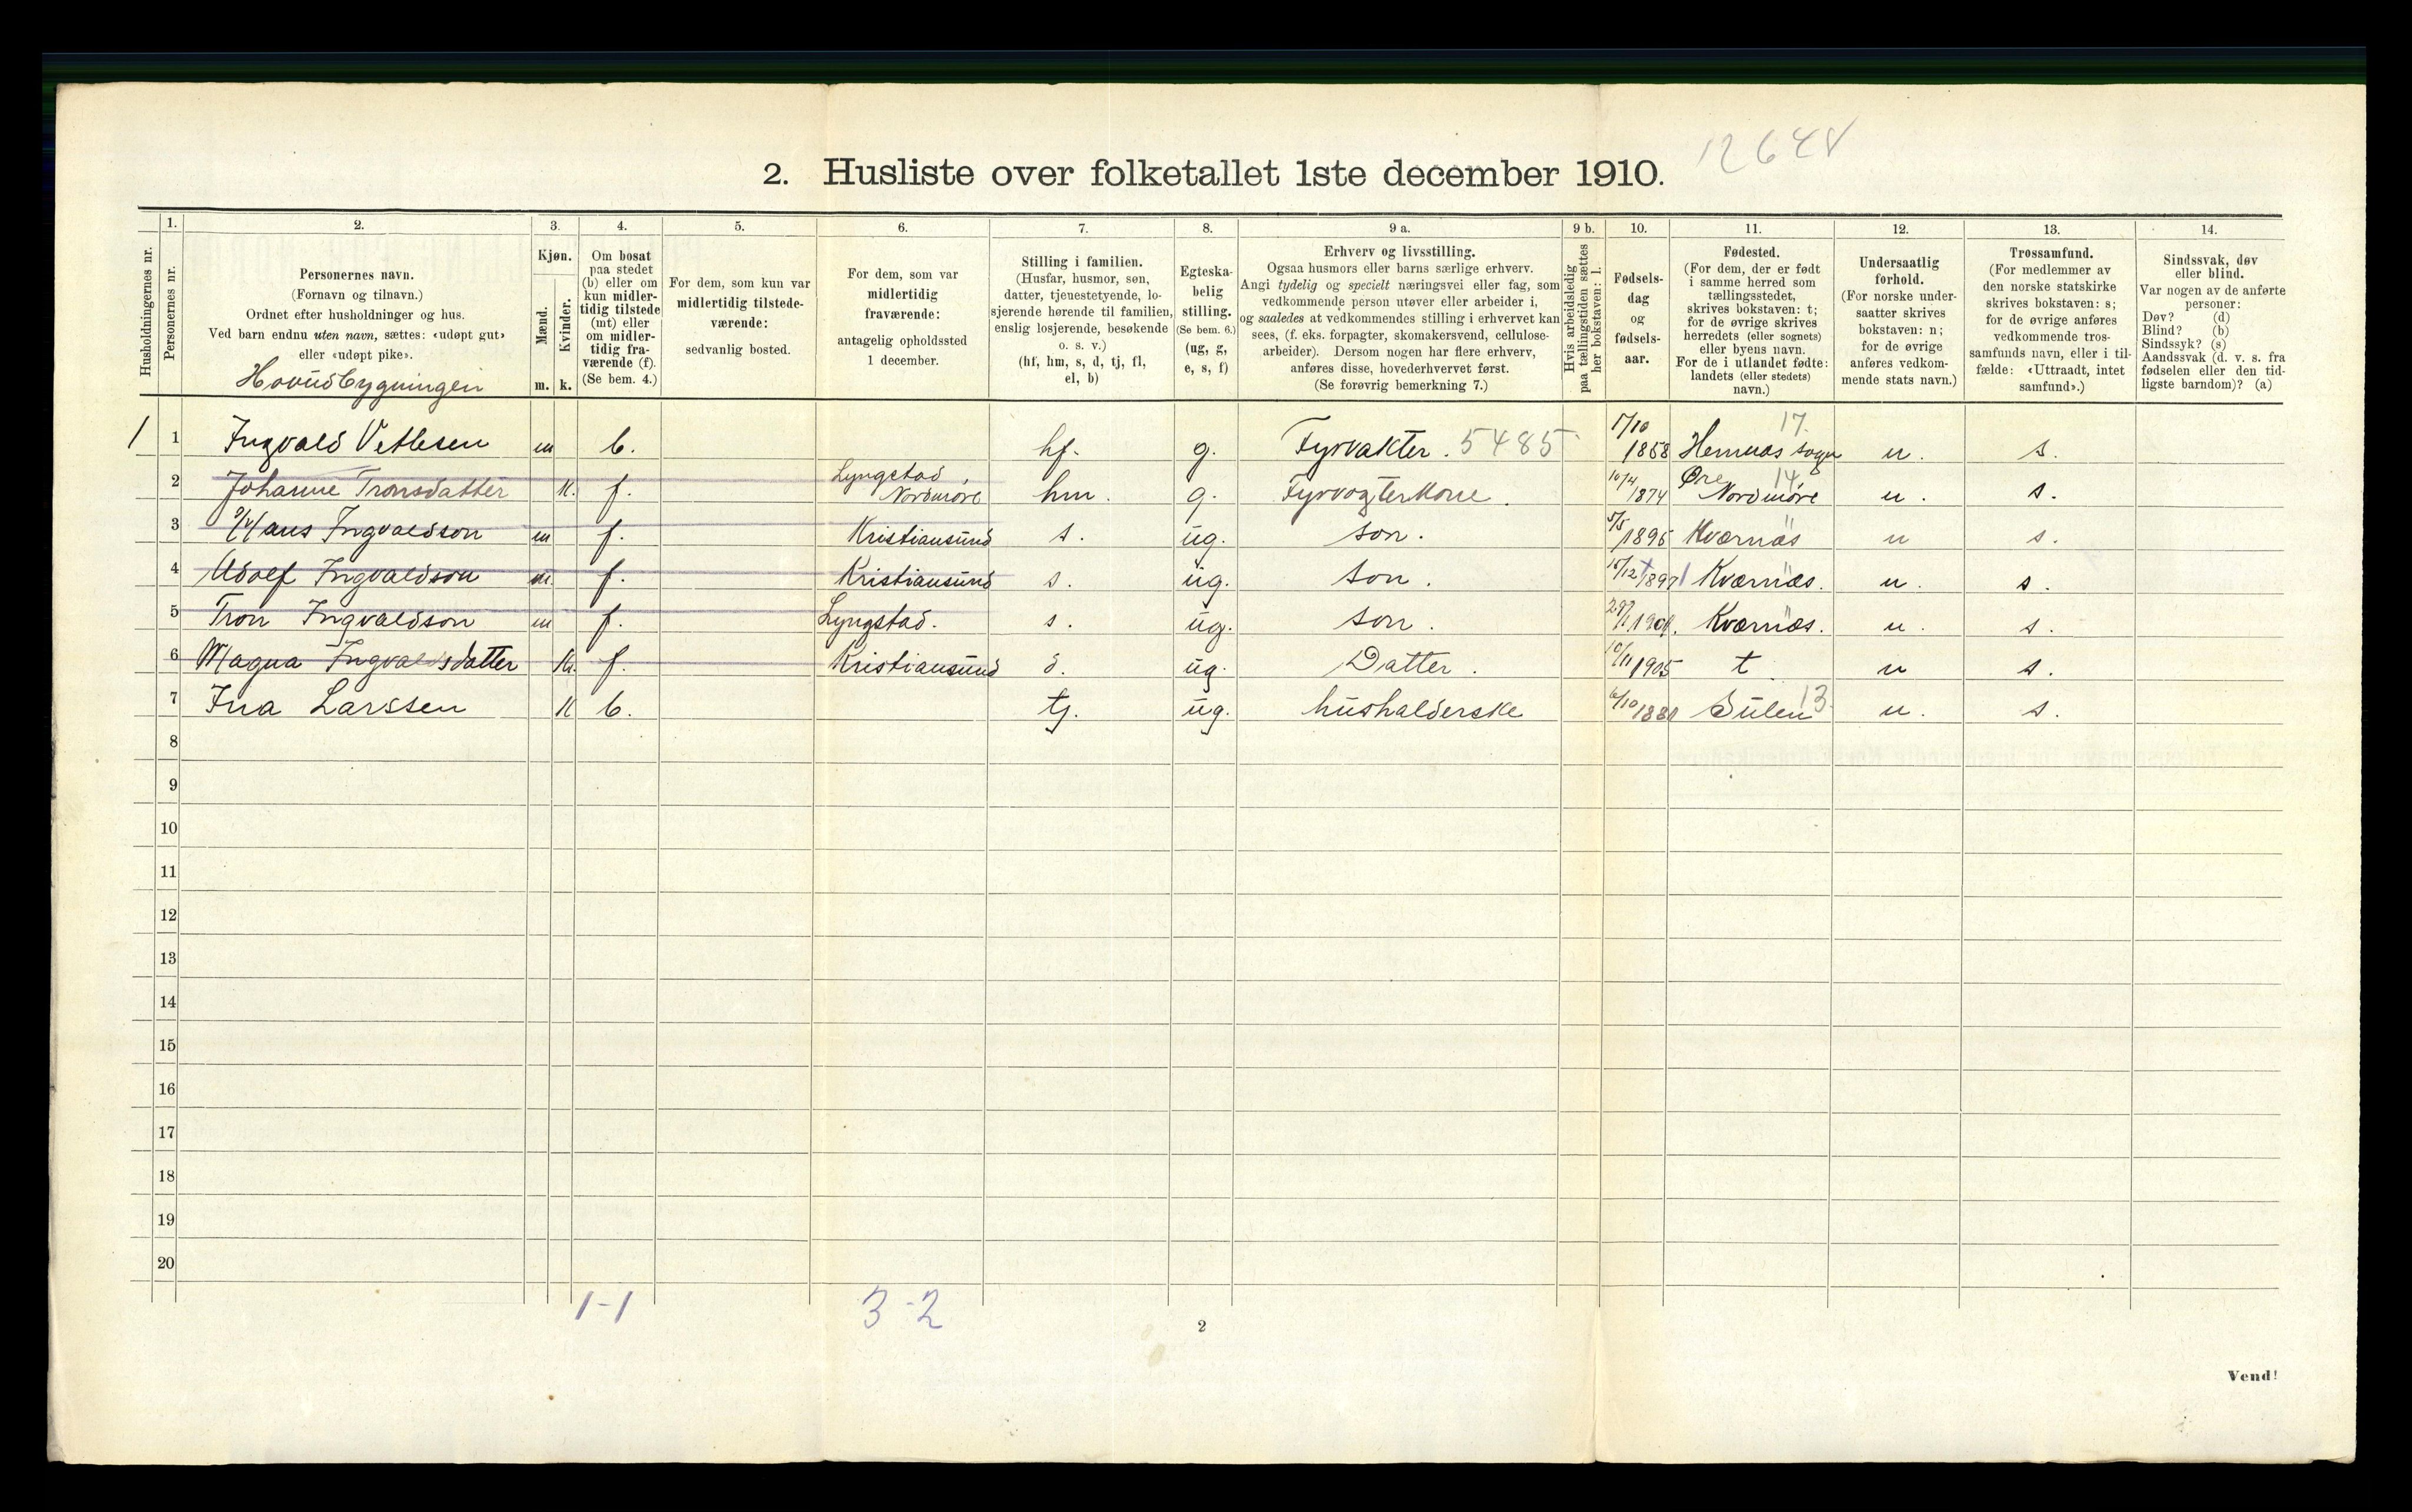 12648
2. Husliste over folketallet 1ste december 1910.
Husholdningernes nr.
1.
Personernes nr.
2.
Personernes navn.
(Fornavn og tilnavn.)
Ordnet efter husholdninger og hus.
Ved barn endnu uten navn, sættes: «udøpt gut»
eller «udøpt pike».
Hovudbygningen
3.
Kjøn.
Mænd.
Kvinder.
m. k.
4.
Om bosat
paa stedet
(b) eller om
kun midler-
tidig tilstede
(mt) eller
om midler-
tidig fra-
værende (f).
(Se bem. 4.)
5.
For dem, som kun var
midlertidig tilstede-
værende:
sedvanlig bosted.
6.
For dem, som var
midlertidig
fraværende:
antagelig opholdssted
1 december.
7.
Stilling i familien.
(Husfar, husmor, søn,
datter, tjenestetyende, lo-
sjerende hørende til familien,
enslig losjerende, besøkende
o. s. v.)
(hf, hm, s, d, tj, fl,
el, b)
8.
Egteska-
belig
stilling.
(Se bem. 6.)
(ug, g,
e, s, f)
9 a.
Erhverv og livsstilling.
Ogsaa husmors eller barns særlige erhverv.
Angi tydelig og specielt næringsvei eller fag, som
vedkommende person utøver eller arbeider i,
og saaledes at vedkommendes stilling i erhvervet kan
sees, (f. eks. forpagter, skomakersvend, cellulose-
arbeider). Dersom nogen har flere erhverv,
anføres disse, hovederhvervet først.
(Se forøvrig bemerkning 7.)
9 b.
Hvis arbeidsledig
paa tællingstiden sættes
her bokstaven: l.
10.
Fødsels-
dag
og
fødsels-
aar.
11.
Fødested.
(For dem, der er født
i samme herred som
tællingsstedet,
skrives bokstaven: t;
for de øvrige skrives
herredets (eller sognets)
eller byens navn.
For de i utlandet fødte:
landets (eller stedets)
navn.)
12.
Undersaatlig
forhold.
(For norske under-
saatter skrives
bokstaven: n;
for de øvrige
anføres vedkom-
mende stats navn.)
13.
Trossamfund.
(For medlemmer av
den norske statskirke
skrives bokstaven: s;
for de øvrige anføres
vedkommende tros-
samfunds navn, eller i til-
fælde: «Uttraadt, intet
samfund».)
14.
Sindssvak, døv
eller blind.
Var nogen av de anførte
personer:
Døv? (d)
Blind? (b)
Sindssyk? (s)
Aandssvak (d. v. s. fra
fødselen eller den tid-
ligste barndom)? (a)
1 1 Ingvald Vetlesen m b. hf. g. Fyrvakter. 5485 1858 sogn 17. n. s.
2 Johanne Tronsdatter k. f. Lyngstad, Nordmøre hm. g. Fyrvogterkone. 10/4 1874 Øre Nordmøre 14 n. s.
3 Hans Ingvaldson m f. Kristiansund s. ug. son. 5/5 1896 Kværnäs n s.
4 Adolf Ingvaldson m. f. Kristiansund s. ug. son. 15/12 1897 Kværnæs. n. s.
5 Tron Ingvaldson m f. Lyngstad. s. ug. son. Kværnæs. n. s.
6 Magna Ingvaldsdatter k. f. Kristiansund d. ug. Datter. 10/11 1905 t n s.
7 Ina Larssen k b. tj. ug. husholderske 6/10 Sulen 13 n. s.
8
9
10
11
12
13
14
15
16
17
18
19
20
1-1
3-2
2
Vend!